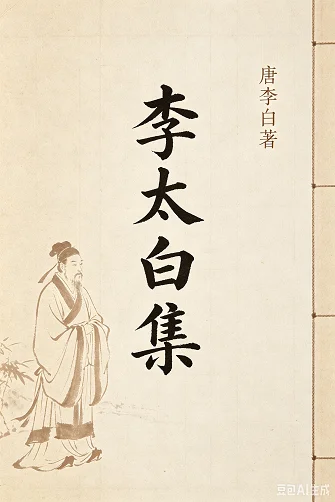 唐李白著
李太白集
豆包AI生成